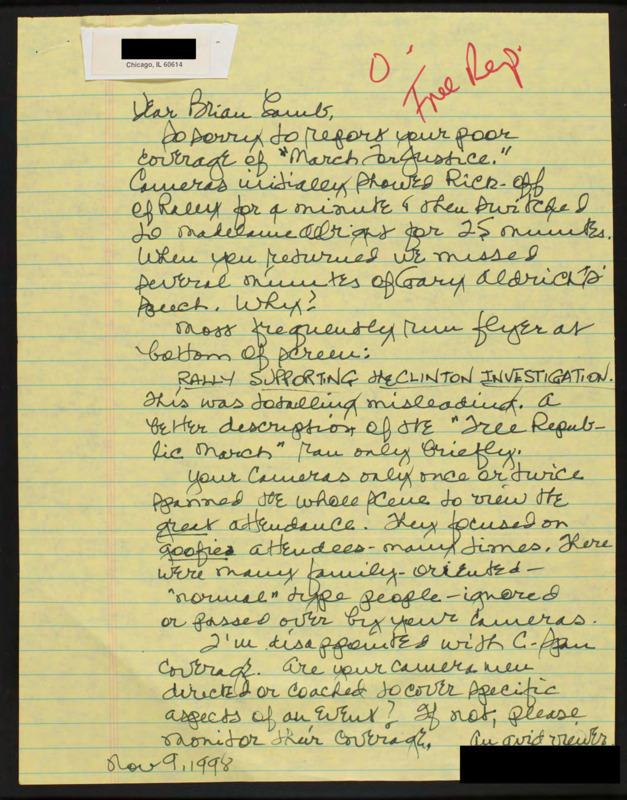 Chicago, IL 60614
Free Rep.
Dear Brian Lamb,
So sorry to report your poor
coverage of "March for Justice."
Cameras initially showed kick-off
of Rally for a minute & then switched
to madelaine Albright for 25 minutes.
When you returned we missed
several minutes of Gary Aldrich's
speech. Why?
Most frequently run flyer at
bottom of screen:
RALLY SUPPORTING THE CLINTON INVESTIGATION.
This was totalling misleading. A
better description of the "Free Repub-
lic March" ran only briefly.
Your cameras only once or twice
spanned the whole scene to view the
great attendance. They focused on
goofier attendees - many times. There
were many family-oriented -
"normal" type people - ignored
or passed over by your cameras.
I'm disappointed with C-Span
coverage. Are your camera men
directed or coached to cover specific
aspects of an event? If not, please
monitor their coverage. An avid viewer
Nov 9, 1998